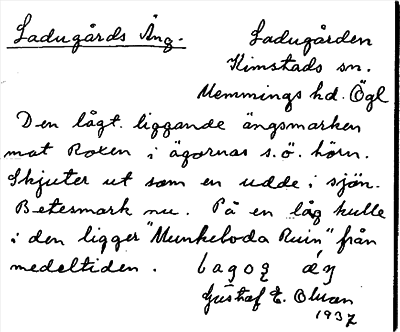 Ladugårds Äng.
Ladugården
Kimstads sn.
Memmings hd. Ögl
Den lågt. liggande ängsmarken
mot Roxen i ägornas s.ö. hörn.
Skjuter ut som en udde i sjön.
Betesmark nu. På en låg kulle
i den ligger "Munkeboda Ruin" från
medeltiden.
Gustaf E. Olson
1937